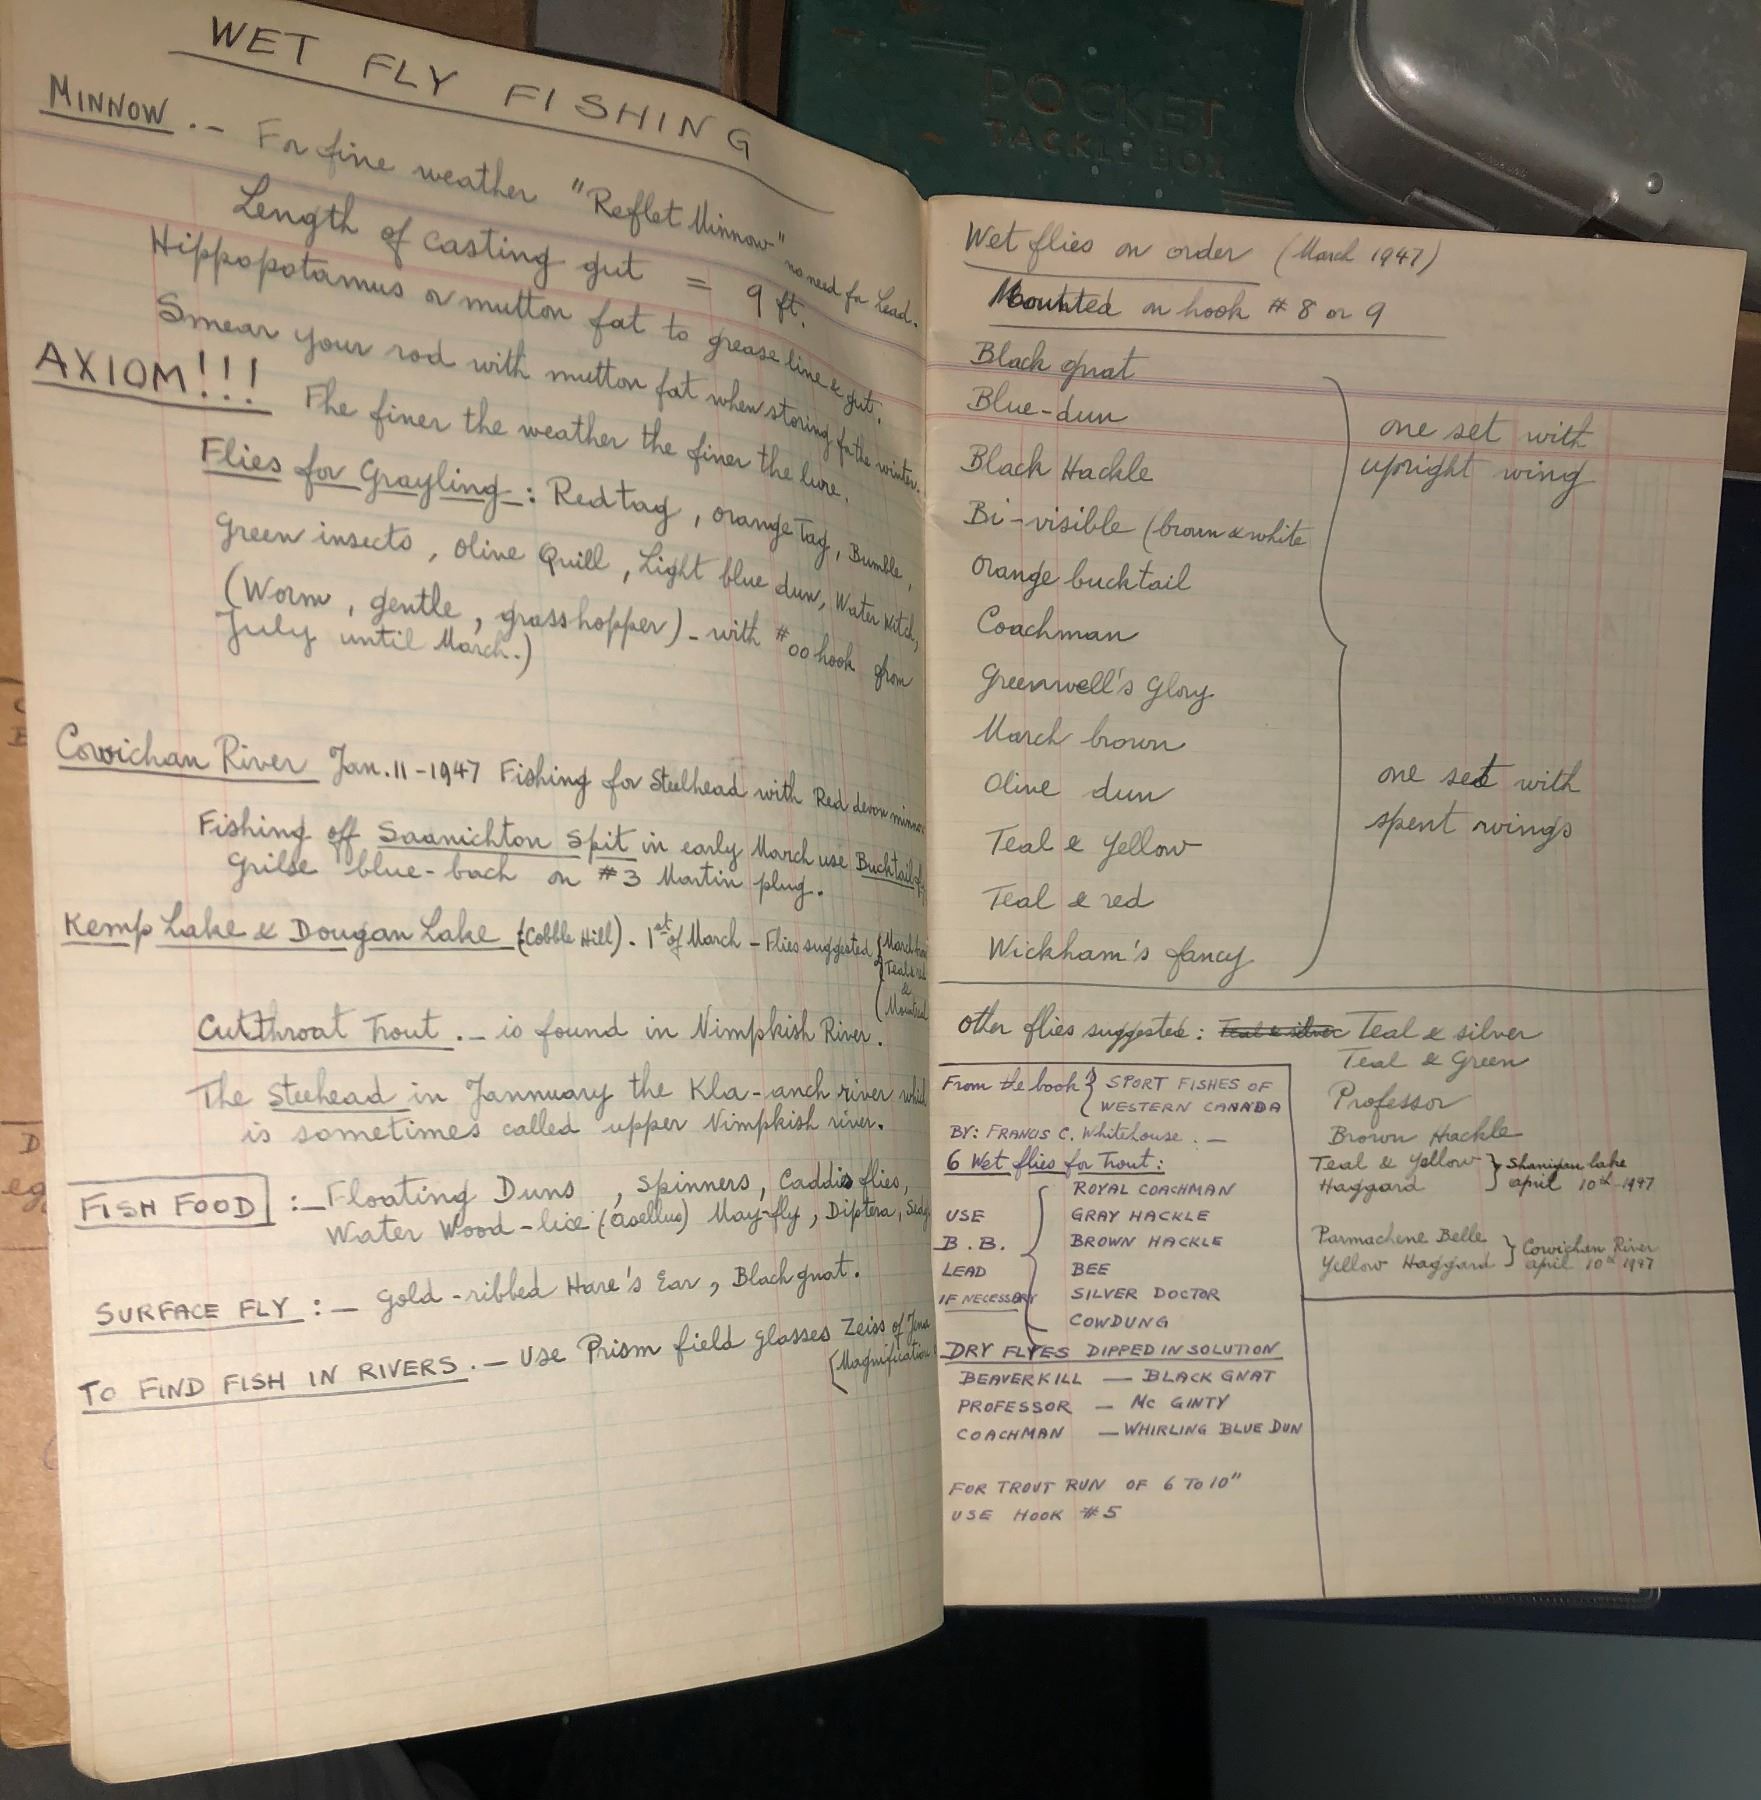 WET FLY FISHING
MINNOW .- For fine weather "Reflet Minnow" no need for Lead.
Length of casting gut = 9 ft.
Hippopotamus or mutton fat to grease line & gut.
Smear your rod with mutton fat when storing for the winter.
AXIOM!!! The finer the weather the finer the lure.
Flies for Grayling: Red tag, orange Tag, Bumble,
Green insects, Olive Quill, Light blue dun, Water Witch,
(Worm, gentle, grasshopper) - with #00 hook from
July until March.)
Cowichan River Jan. 11-1947 Fishing for Steelhead with Red devon minnow
Fishing off Saanichton Spit in early March use Bucktail
Grilse blue-back on #3 Martin plug.
Kemp Lake & Dougan Lake (Cobble Hill). 1st of March - Flies suggested { March
Teal & red
&
Montreal
Cutthroat Trout .- is found in Nimpkish River.
The Steehead in Jannuary the Kla-anch river which
is sometimes called upper Nimpkish river.
FISH FOOD :- Floating Duns , spinners, Caddis flies,
Water Wood-lice (asellus) May-fly, Diptera,
SURFACE FLY :- Gold-ribbed Hare's Ear, Black gnat.
TO FIND FISH IN RIVERS .- Use Prism field glasses Zeiss of Jena
(Magnification
POCKET
TACKLE BOX
Wet flies on order (March 1947)
Mounted on hook # 8 or 9
Black gnat
Blue-dun
Black Hackle
Bi-visible (brown & white
Orange bucktail
Coachman
Greenwell's Glory
March brown
Olive dun
Teal & Yellow
Teal & red
Wickham's fancy
one set with
upright wing
one set with
spent wings
Other flies suggested: Teal & silver Teal & silver
Teal & Green
Professor
Brown Hackle
Teal & Yellow } Shanigan lake
Haggard april 10th 1947
Parmachene Belle } Cowichan River
Yellow Haggard april 10th 1947
From the book } SPORT FISHES OF
WESTERN CANADA
BY: FRANCIS C. Whitehouse .-
6 Wet flies for Trout:
USE
B.B.
LEAD
IF NECESSARY
ROYAL COACHMAN
GRAY HACKLE
BROWN HACKLE
BEE
SILVER DOCTOR
COWDUNG
DRY FLYES DIPPED IN SOLUTION
BEAVERKILL — BLACK GNAT
PROFESSOR — Mc GINTY
COACHMAN — WHIRLING BLUE DUN
FOR TROUT RUN OF 6 TO 10"
USE HOOK #5